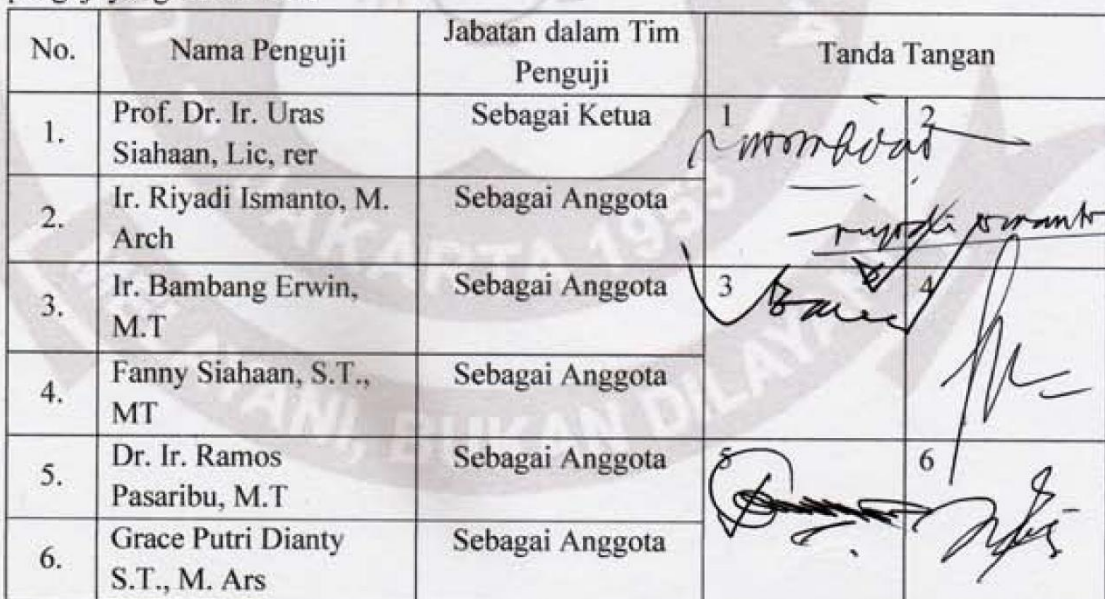 No. Nama Penguji Jabatan dalam Tim Penguji Tanda Tangan
1. Prof. Dr. Ir. Uras Siahaan, Lic, rer Sebagai Ketua 1 2
2. Ir. Riyadi Ismanto, M. Arch Sebagai Anggota
3. Ir. Bambang Erwin, M.T Sebagai Anggota 3 4
4. Fanny Siahaan, S.T., MT Sebagai Anggota
5. Dr. Ir. Ramos Pasaribu, M.T Sebagai Anggota 5 6
6. Grace Putri Dianty S.T., M. Ars Sebagai Anggota